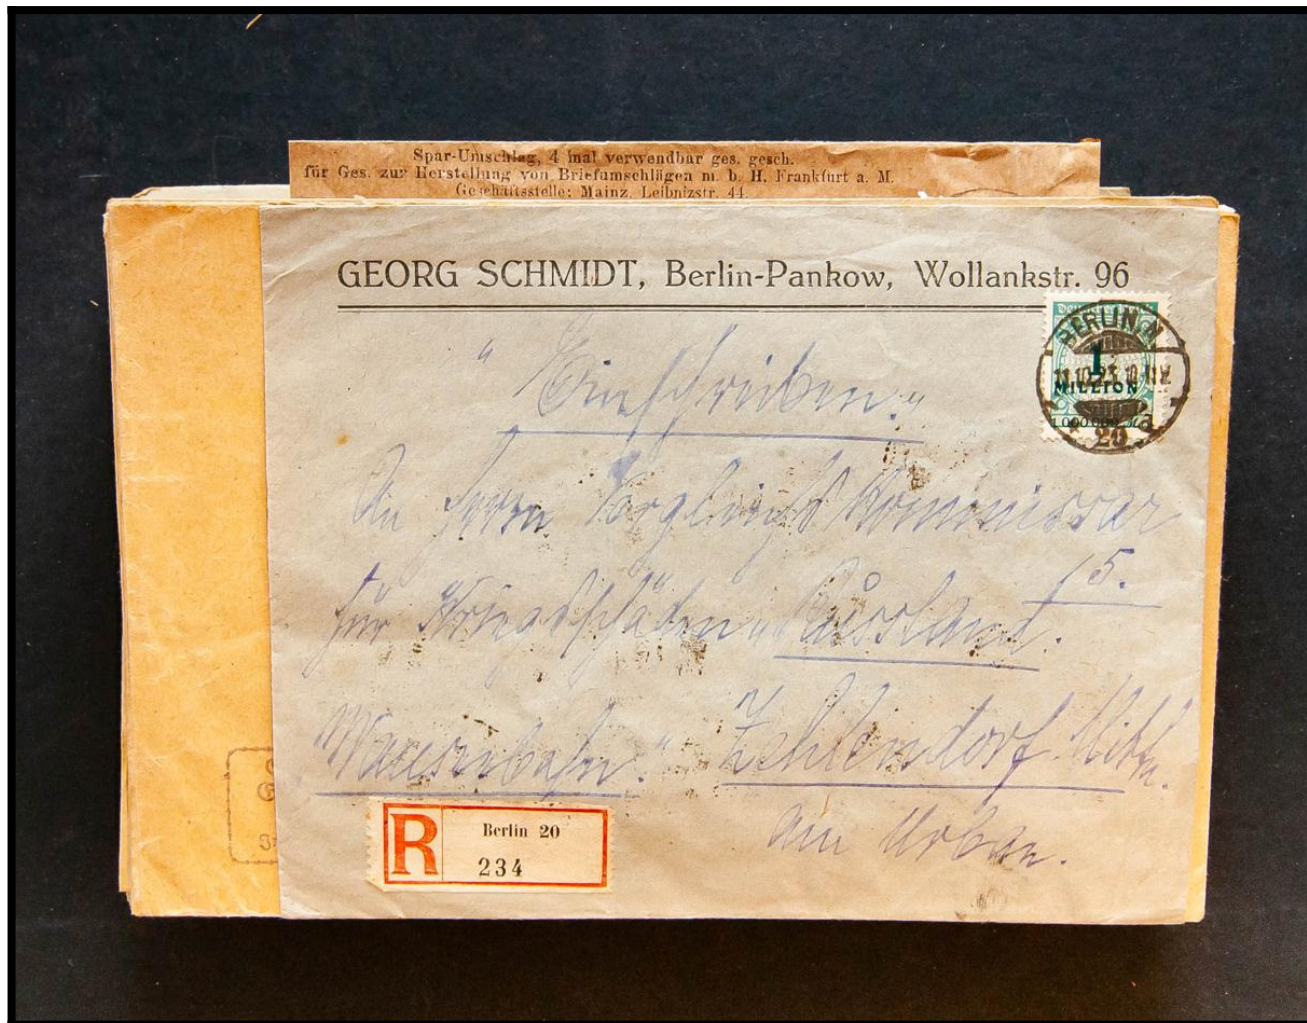 Spar-Umschlag, 4 mal verwendbar ges. gesch.
für Ges. zur Herstellung von Briefumschlägen m. b. H. Frankfurt a. M.
Geschäftsstelle: Mainz, Leibnizstr. 44.
GEORG SCHMIDT, Berlin-Pankow, Wollankstr. 96
BERLIN N
1
MILLION
20
„Einschreiben."
An Herrn Vergleichs Kommissar
15.
für Kriegsschäden „Russland.
Zehlendorf
am Urban.
R Berlin 20
234